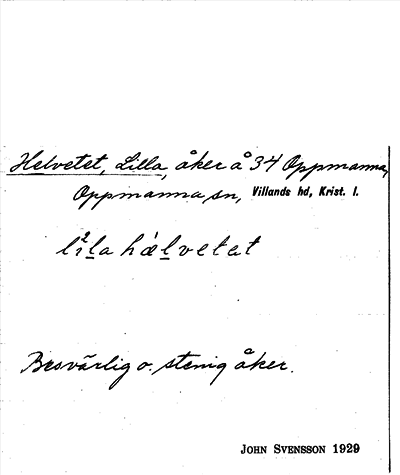 Helvetet, Lilla, åker å 34 Oppmanna,
Oppmanna sn, Villands hd, Krist. l.
li²la hǽlvetet
Besvärlig o. stenig åker.
JOHN SVENSSON 1929